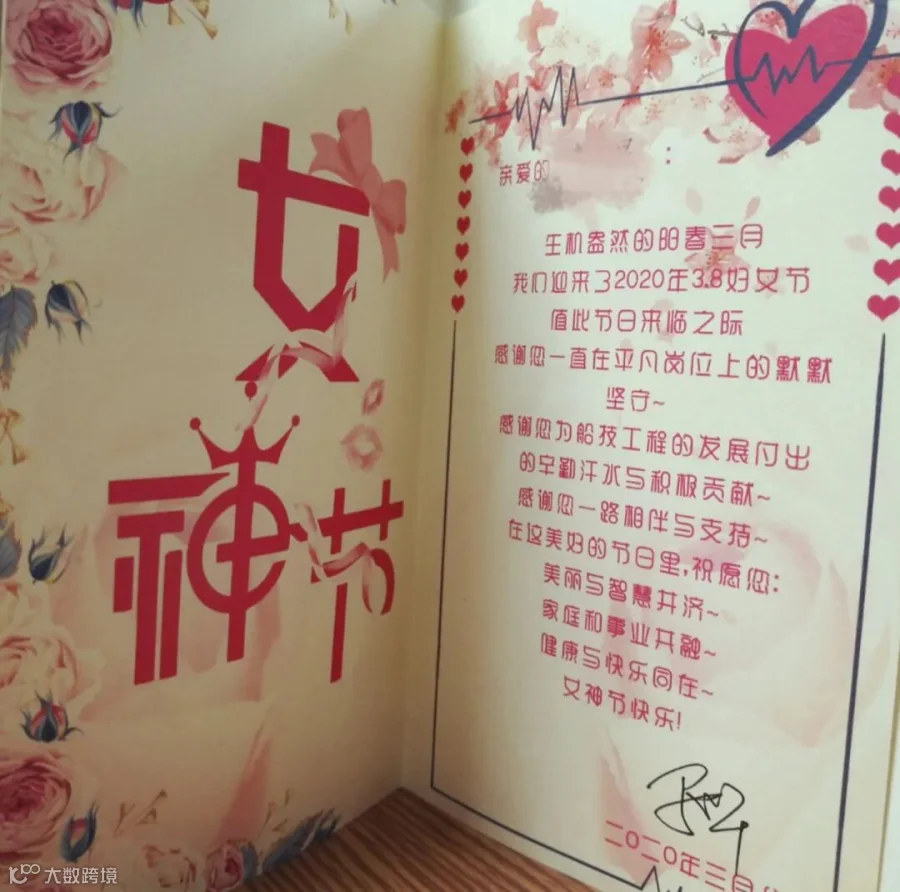 女
神节
亲爱的 :
生机盎然的阳春三月
我们迎来了2020年3.8妇女节
值此节日来临之际
感谢您一直在平凡岗位上的默默
坚守~
感谢您为船技工程的发展付出
的辛勤汗水与积极贡献~
感谢您一路相伴与支持~
在这美好的节日里,祝愿您:
美丽与智慧并济~
家庭和事业共融~
健康与快乐同在~
女神节快乐!
二〇二〇年三月
大数跨境